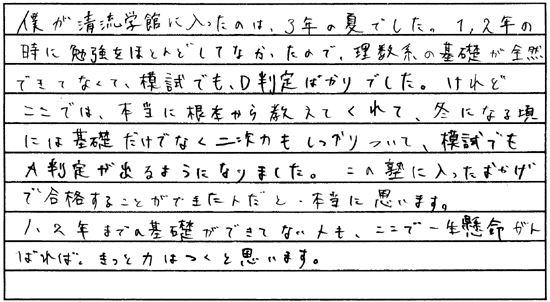 僕が清流学館に入ったのは、3年の夏でした。1,2年の
時に勉強をほとんどしてなかったので、理数系の基礎が全然
できてなくて、模試でも、D判定ばかりでした。けれど
ここでは、本当に根本から教えてくれて、冬になる頃
には基礎だけでなく二次力もしっかりついて、模試でも
A判定が出るようになりました。この塾に入ったおかげ
で合格することができたんだと、本当に思います。
1、2年までの基礎ができてない人も、ここで一生懸命がん
ばれば、きっと力はつくと思います。